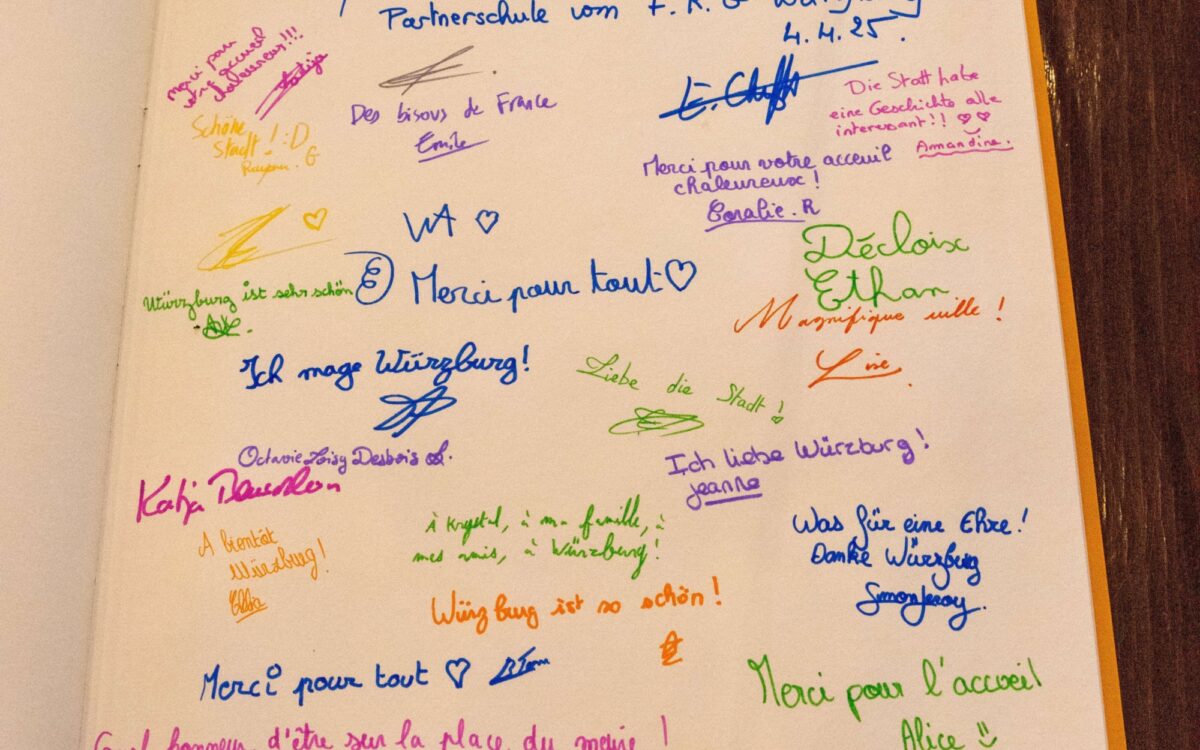 Partnerschule vom F. K. G Würzburg
4.4.25.
merci pour
votre accueil
chaleureux!!!
Schöne
Stadt! :D
Des bisous de France
Emile
Die Statt habe
eine Geschichte alle
interesant!! ♡♡
Amandine.
Merci pour votre acceuil
chaleureux!
Coralie. R
♡
WA ♡
Décloix
Ethan
Würzburg ist sehr schön
Merci pour tout ♡
Magnifique ville !
Lise
Ich mage Würzburg!
Liebe die Stadt !
Octavie Loisy Desbois
Ich liebe Würzburg!
jeanne
Katja
A bientôt
Würzburg!
à Krystel, à ma famille, à
mes amis, à Würzburg!
Was für eine Ehre!
Danke Würzburg
Simon Jeroy.
Würzburg ist so schön !
Merci pour tout ♡
Merci pour l'accueil
Alice
Quel honneur d'être sur la place du maire !